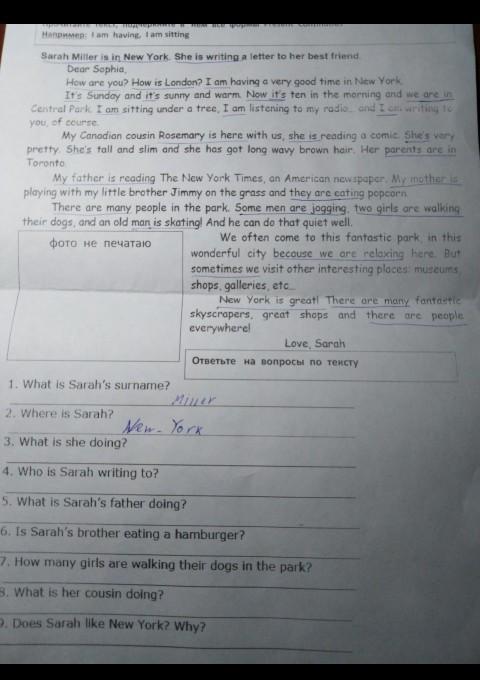 Прочитайте текст, подчеркните в нем все формы Present Continuous
Например: I am having, I am sitting
Sarah Miller is in New York. She is writing a letter to her best friend.
Dear Sophia,
How are you? How is London? I am having a very good time in New York.
It's Sunday and it's sunny and warm. Now it's ten in the morning and we are in
Central Park. I am sitting under a tree, I am listening to my radio... and I am writing to
you, of course.
My Canadian cousin Rosemary is here with us, she is reading a comic. She's very
pretty. She's tall and slim and she has got long wavy brown hair. Her parents are in
Toronto.
My father is reading The New York Times, an American newspaper. My mother is
playing with my little brother Jimmy on the grass and they are eating popcorn.
There are many people in the park. Some men are jogging, two girls are walking
their dogs, and an old man is skating! And he can do that quiet well.
фото не печатаю
We often come to this fantastic park, in this
wonderful city because we are relaxing here. But
sometimes we visit other interesting places: museums,
shops, galleries, etc...
New York is great! There are many fantastic
skyscrapers, great shops and there are people
everywhere!
Love, Sarah
Ответьте на вопросы по тексту
1. What is Sarah's surname?
Miller
2. Where is Sarah?
New-York
3. What is she doing?
4. Who is Sarah writing to?
5. What is Sarah's father doing?
6. Is Sarah's brother eating a hamburger?
7. How many girls are walking their dogs in the park?
8. What is her cousin doing?
9. Does Sarah like New York? Why?